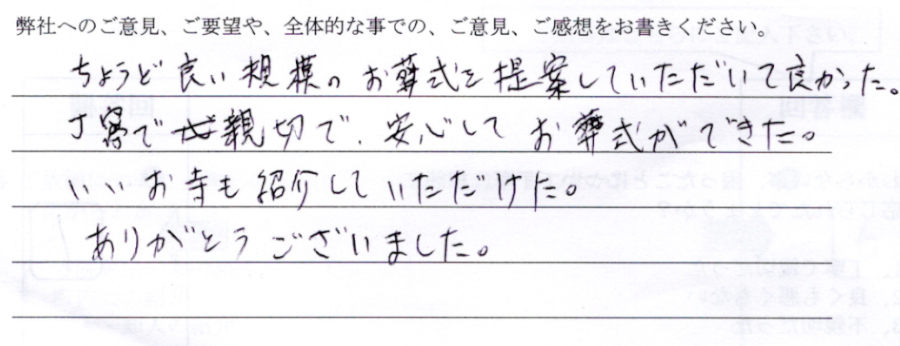 弊社へのご意見、ご要望や、全体的な事での、ご意見、ご感想をお書きください。
ちょうど良い規模のお葬式を提案していただいて良かった。
丁寧で親切で、安心してお葬式ができた。
いいお寺も紹介していただけた。
ありがとうございました。